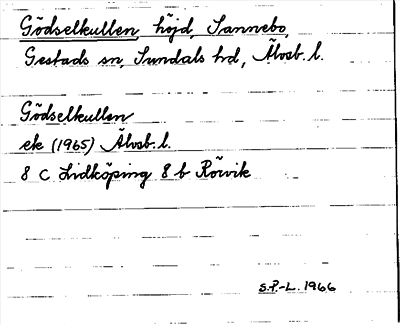 Gödselkullen, höjd, Sannebo,
Gestads sn, Sundals hd, Älvsb. l.
Gödselkullen
ek (1965) Älvsb. l.
8 C Lidköping 8 b Rörvik
S.P.-L. 1966